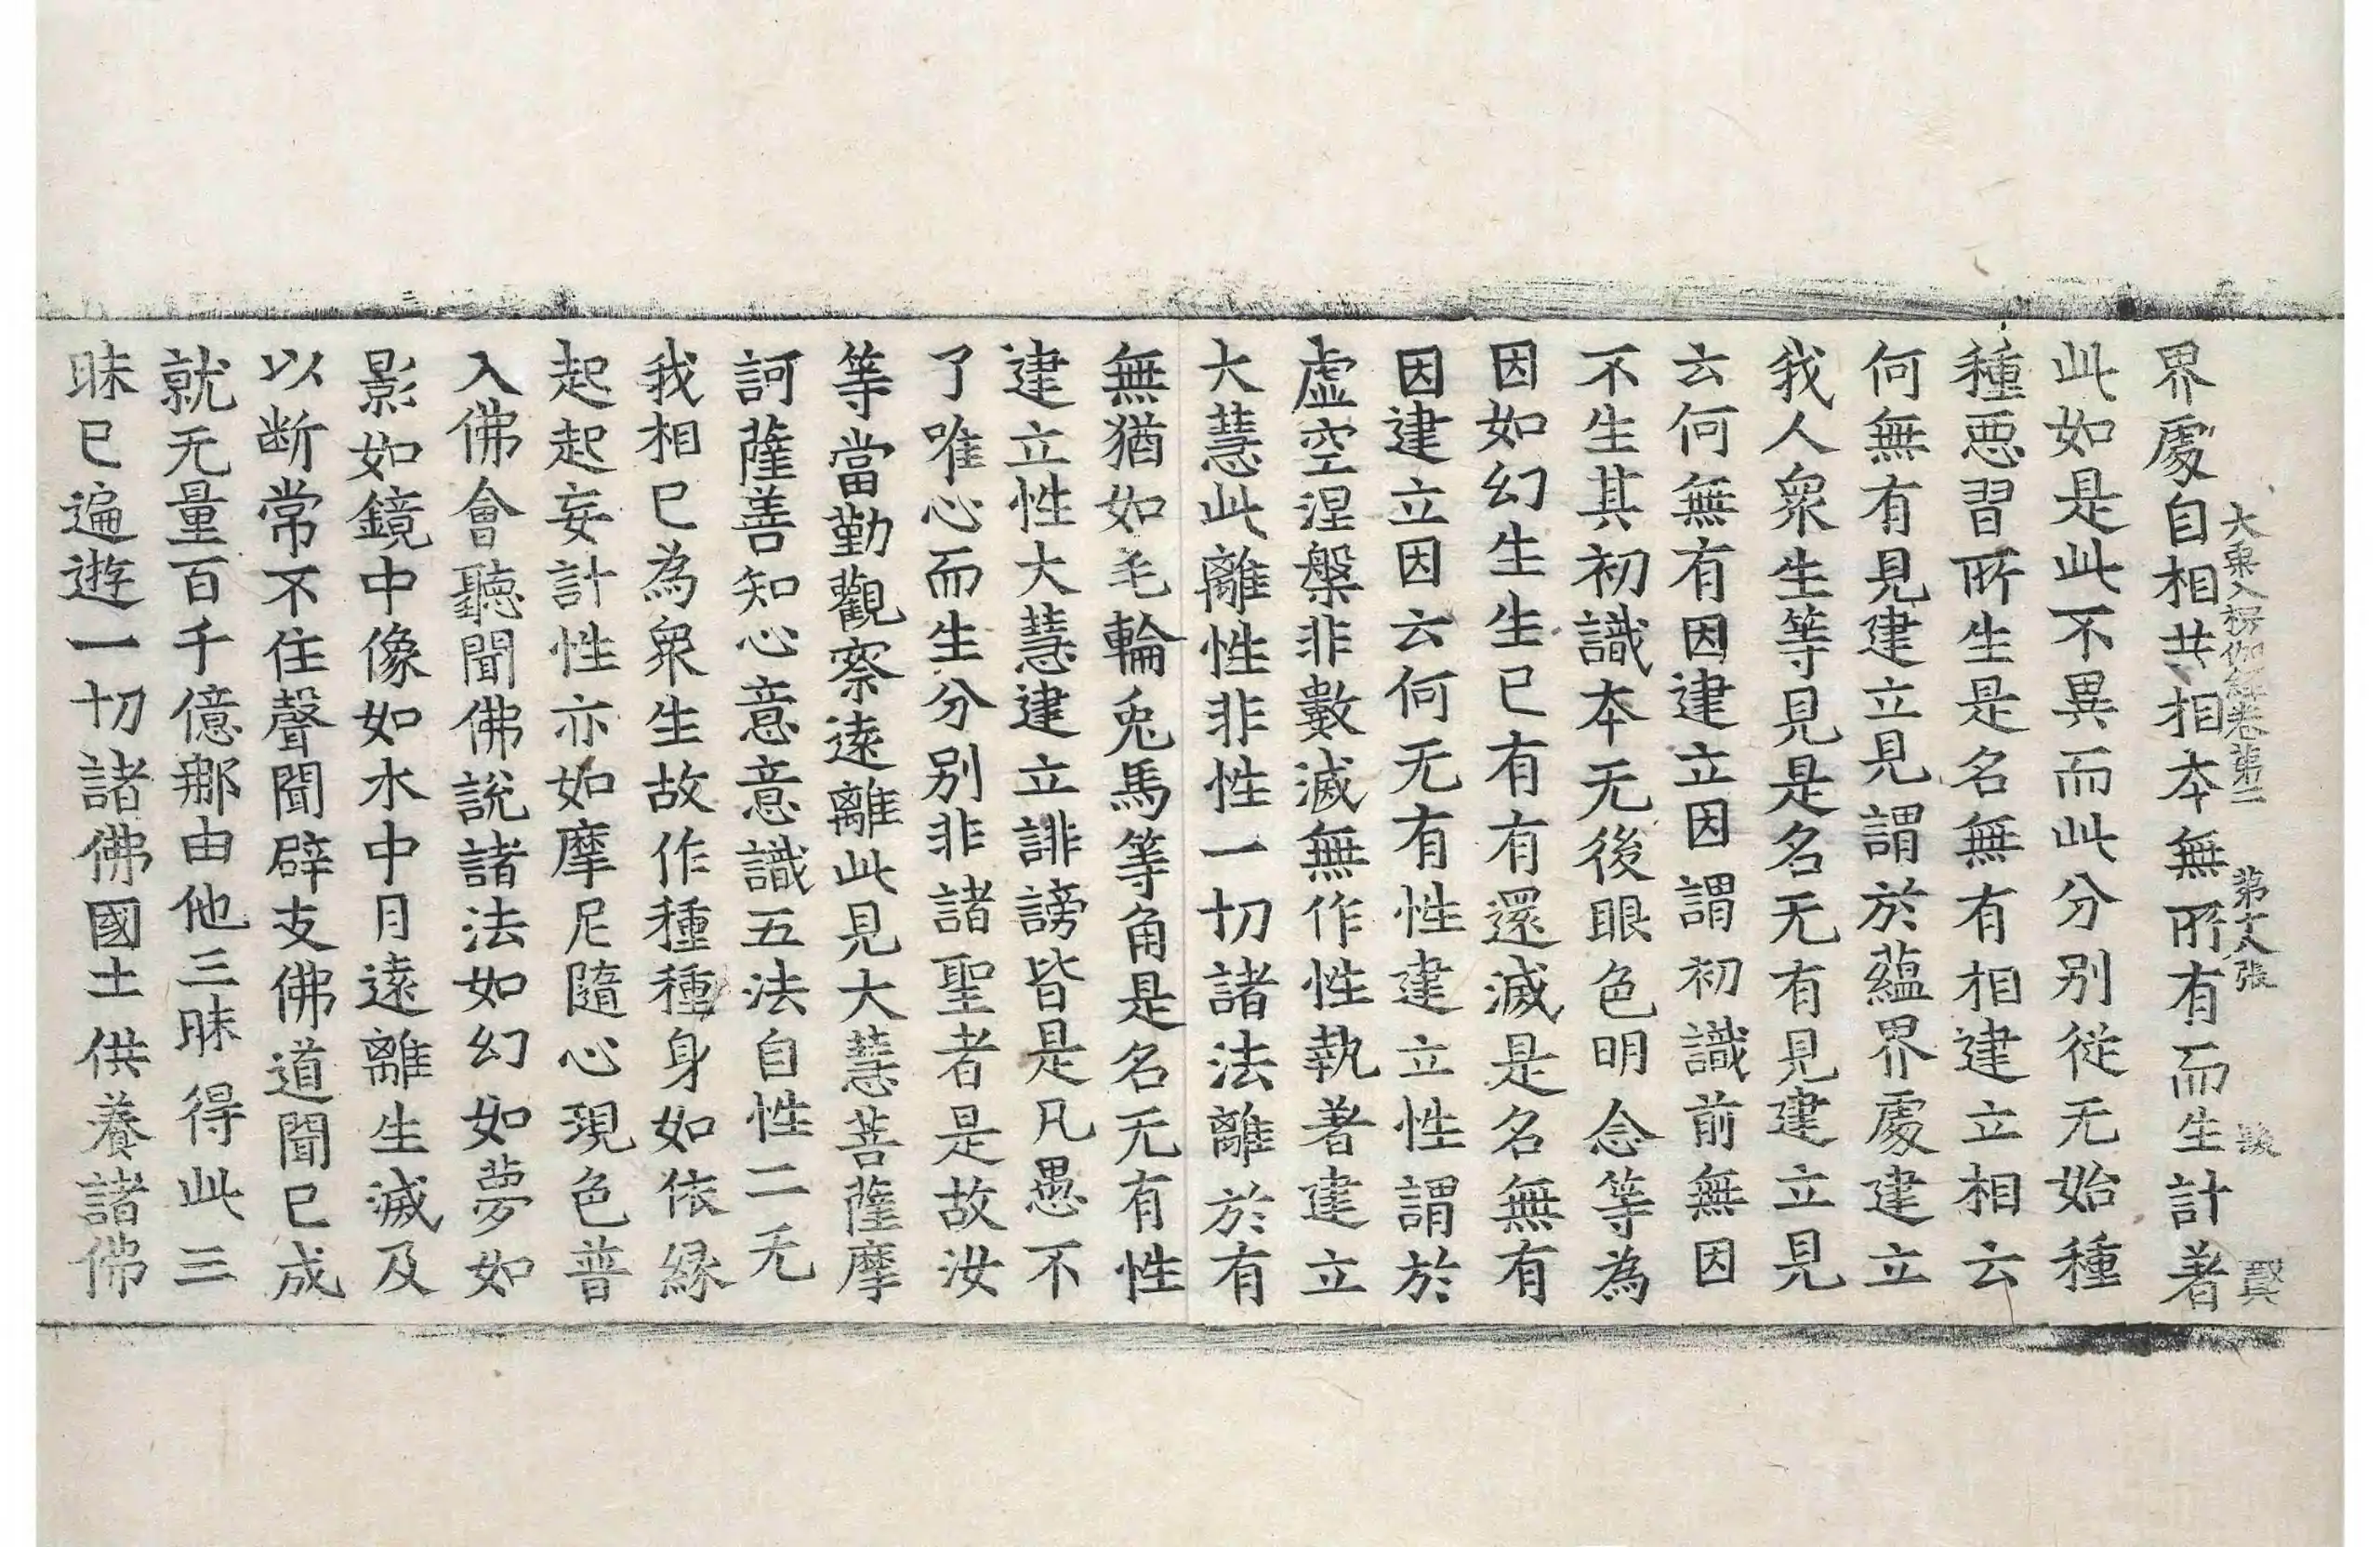 大乗入楞伽経巻第二 第十八張 賢
界處自相共相本無所有而生計著
此如是此不異而此分别從无始種
種惡習所生是名無有相建立相云
何無有見建立見謂於蘊界處建立
我人衆生等見是名无有見建立見
云何無有因建立因謂初識前無因
不生其初識本无後眼色明念等為
因如幻生生已有有還滅是名無有
因建立因云何无有性建立性謂於
虛空涅槃非數滅無作性執著建立
大慧此離性非性一切諸法離於有
無猶如毛輪兔馬等角是名无有性
建立性大慧建立誹謗皆是凡愚不
了唯心而生分别非諸聖者是故汝
等當勤觀察遠離此見大慧菩薩摩
訶薩善知心意意識五法自性二无
我相已為衆生故作種種身如依緣
起起妄計性亦如摩尼隨心現色普
入佛會聽聞佛說諸法如幻如夢如
影如鏡中像如水中月遠離生滅及
以断常不住聲聞辟支佛道聞已成
就无量百千億那由他三昧得此三
昧已遍遊一切諸佛國土供養諸佛